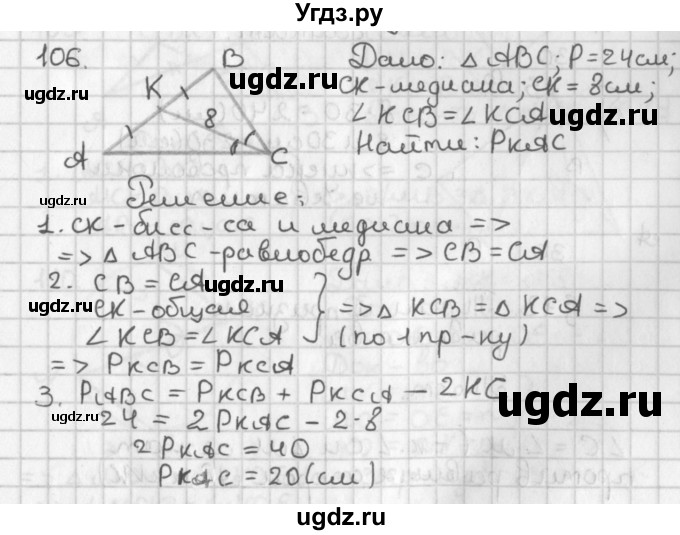 Угдз.ру
106.
B
K
8
A
C
Дано: △ ABC; P = 24 см;
CK - медиана; CK = 8 см;
∠ KCB = ∠ KCA
Найти: PKAC
Решение:
1. CK - бисс-са и медиана =>
=> △ ABC - равнобедр => CB = CA
2. CB = CA
CK - общая
∠ KCB = ∠ KCA
=> △ KCB = △ KCA =>
(по 1 пр-ку)
=> PKCB = PKCA
3. PABC = PKCB + PKCA - 2KC
24 = 2PKAC - 2·8
2PKAC = 40
PKAC = 20 (см)
ugdz.ru
ugdz.ru
ugdz.ru
ugdz.ru
ugdz.ru
ugdz.ru
ugdz.ru
ugdz.ru
ugdz.ru
ugdz.ru
ugdz.ru
ugdz.ru